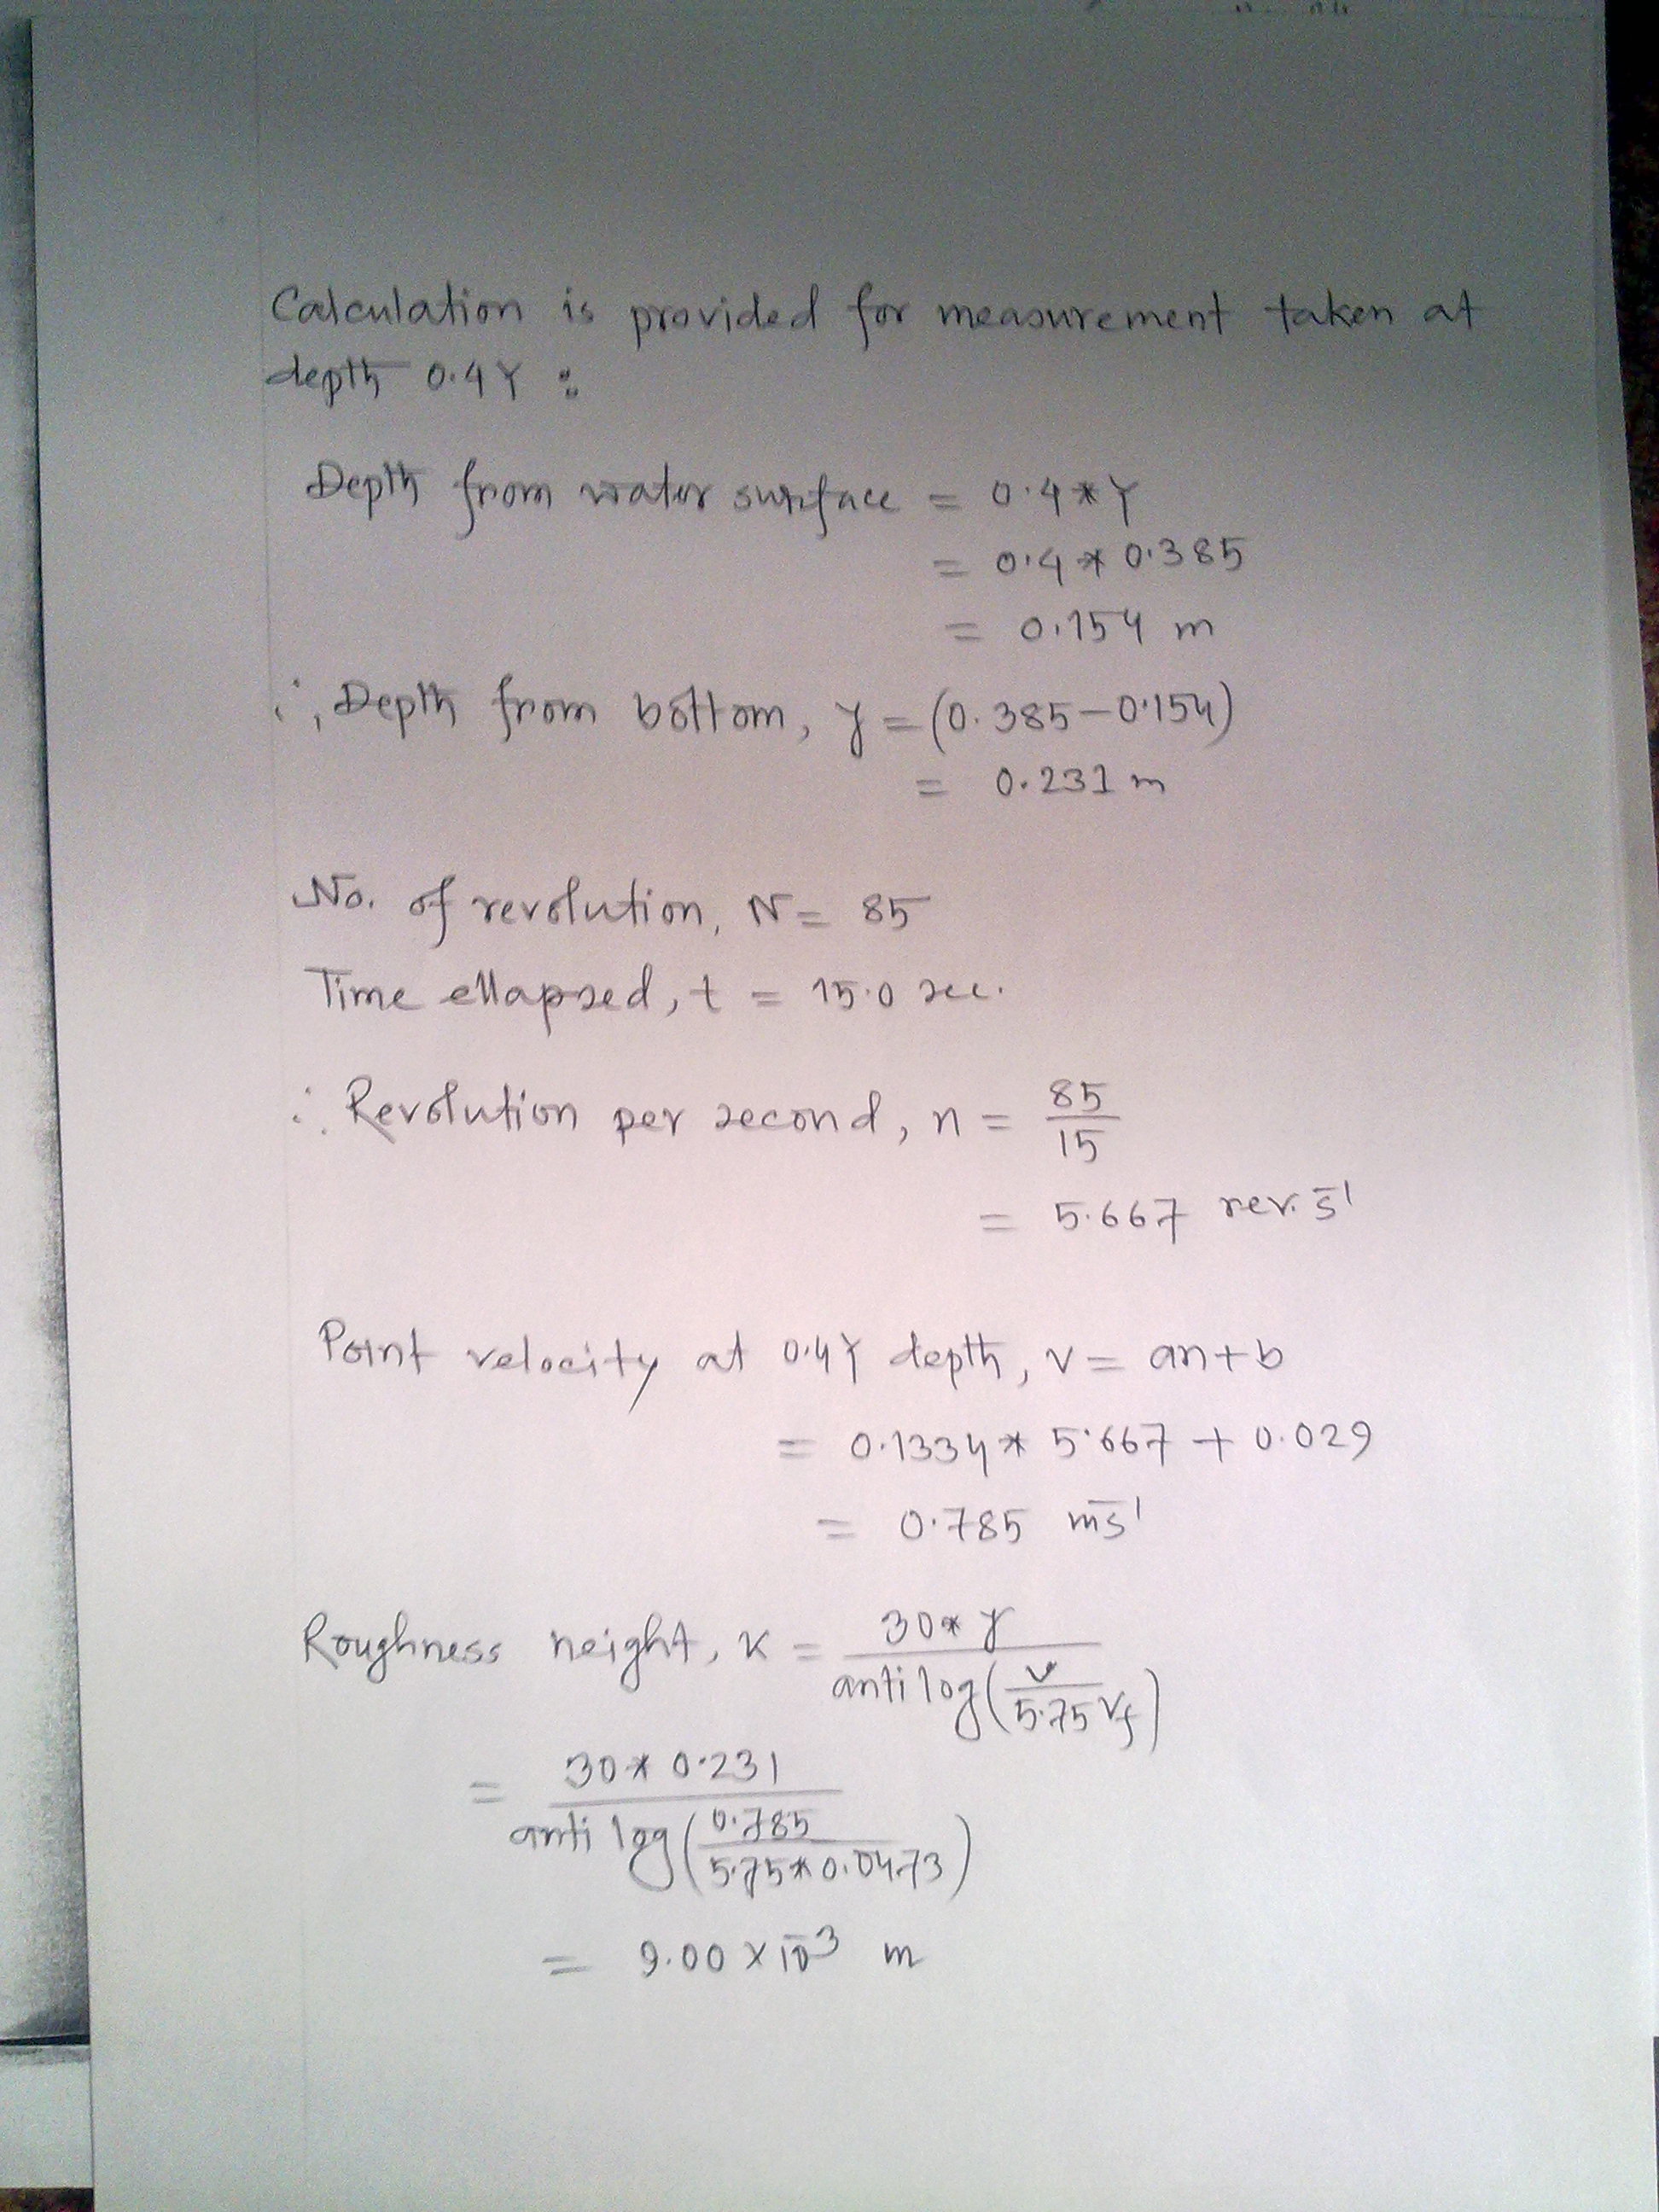 Calculation is provided for measurement taken at
depth 0.4Y :
Depth from water surface = 0.4*Y
= 0.4 * 0.385
= 0.154 m
∴ Depth from bottom, y = (0.385-0.154)
= 0.231 m
No. of revolution, N = 85
Time ellapsed, t = 15.0 sec.
∴ Revolution per second, n = 85/15
= 5.667 rev. s⁻¹
Point velocity at 0.4Y depth, v = an+b
= 0.1334 * 5.667 + 0.029
= 0.785 ms⁻¹
Roughness height, K = 30*y / antilog(v/5.75Vf)
= 30*0.231 / antilog(0.785/5.75*0.0473)
= 9.00 × 10⁻³ m